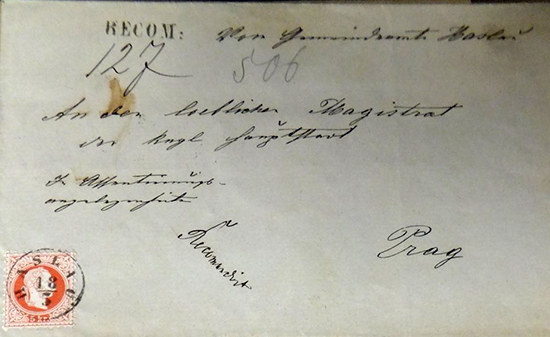 RECOM:
Von Gemeindeamte Haslau
127 506
An den loeblichen Magistrat
der kngl Hauptstadt
In Assentirungs-
angelegenheiten
Recomandirt
Prag
HASLAU
18
5
5 KR